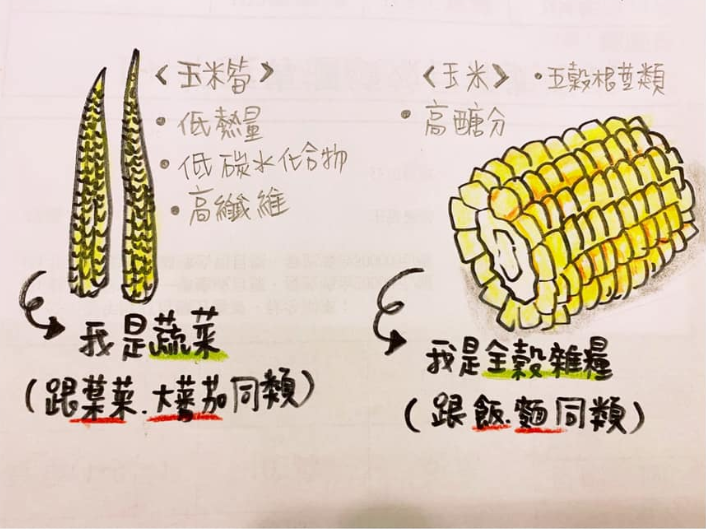 《玉米筍》
• 低熱量
• 低碳水化合物
• 高纖維
我是蔬菜
(跟葉菜.大蕃茄同類)
《玉米》 • 五穀根莖類
• 高醣分
我是全穀雜糧
(跟飯.麵同類)